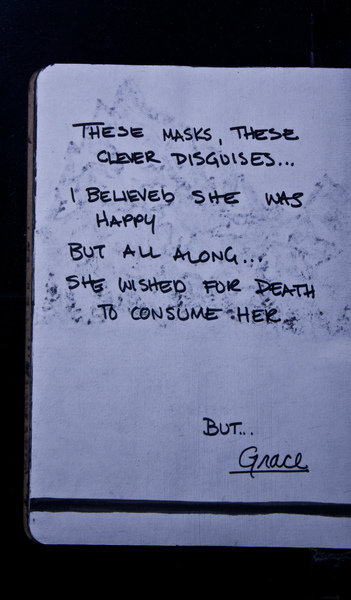 THESE MASKS, THESE
CLEVER DISGUISES...
I BELIEVED SHE WAS
HAPPY
BUT ALL ALONG...
SHE WISHED FOR DEATH
TO CONSUME HER
BUT...
Grace